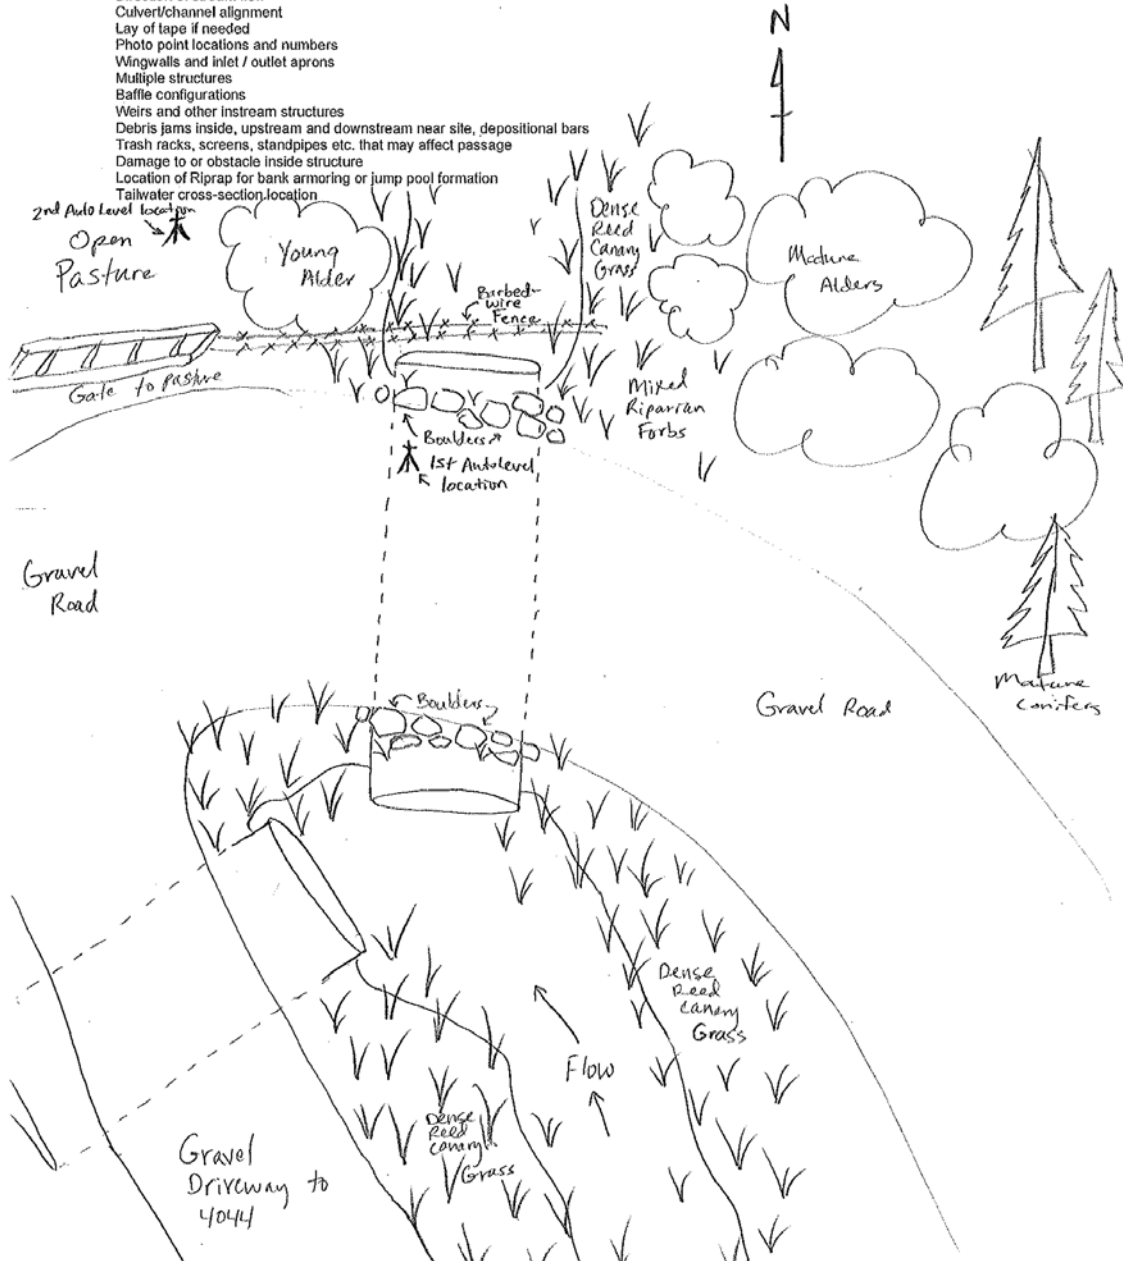 Culvert/channel alignment
Lay of tape if needed
Photo point locations and numbers
Wingwalls and inlet / outlet aprons
Multiple structures
Baffle configurations
Weirs and other instream structures
Debris jams inside, upstream and downstream near site, depositional bars
Trash racks, screens, standpipes etc. that may affect passage
Damage to or obstacle inside structure
Location of Riprap for bank armoring or jump pool formation
Tailwater cross-section location
N
2nd Auto Level location
Open
Pasture
Young
Alder
Dense
Reed
Canary
Grass
Mature
Alders
Barbed-
wire
Fence
Gate to Pasture
Mixed
Riparian
Forbs
Boulders
1st Autolevel
location
Gravel
Road
Mature
conifers
Boulders
Gravel Road
Dense
Reed
Canary
Grass
Flow
Dense
Reed
Canary
Grass
Gravel
Driveway to
4044